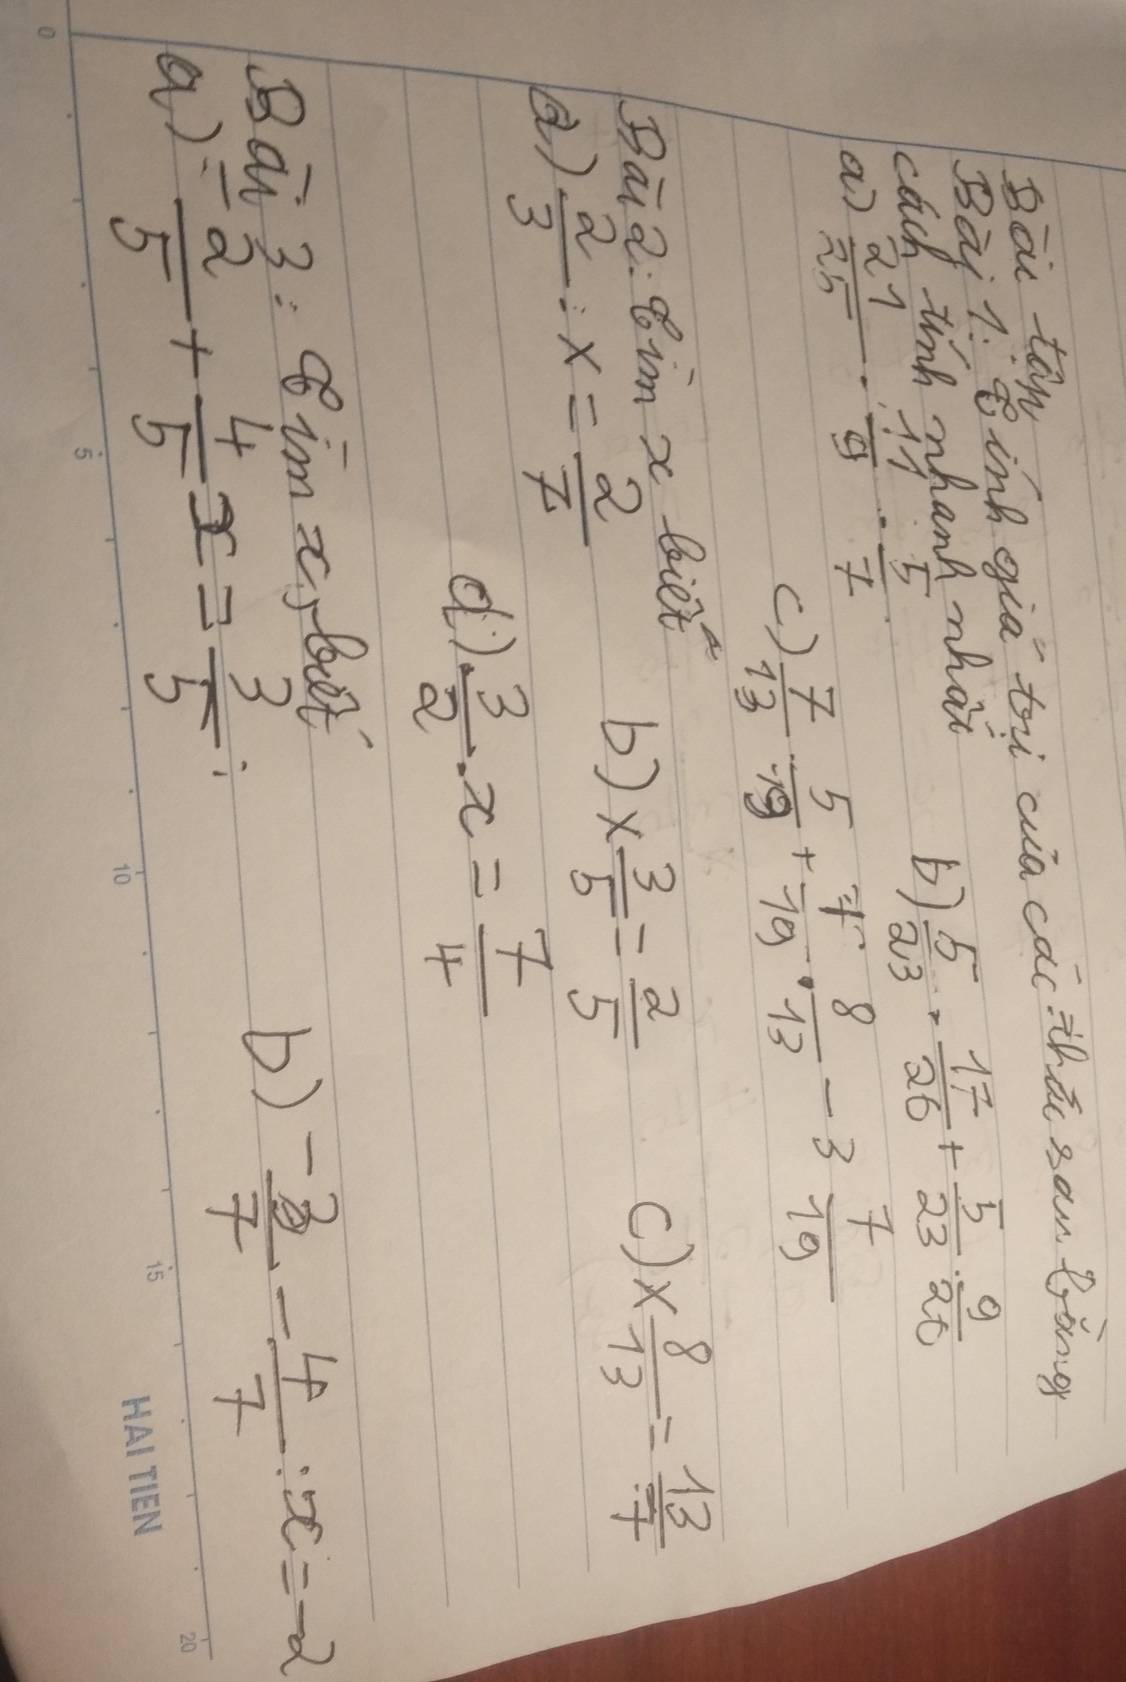 Bài tập
Bài 1: Tính giá trị của các thức sau bằng
cách tính nhanh nhất
a) 21/25 . 11/9 . 5/7 b) 5/23 . 17/26 + 5/23 . 9/26
c) 7/13 . 5/19 + 7/19 . 8/13 - 3 7/19
Bài 2: Tìm x biết
a) 2/3 : x = 2/7 b) x 3/5 = 2/5 c) x 8/13 = 13/7
d) 3/2 . x = 7/4
Bài 3: Tìm x, biết
a) -2/5 + 4/5 x = 3/5; b) -3/7 - 4/7 : x = -2
0 5 10 15 20
HAI TIEN